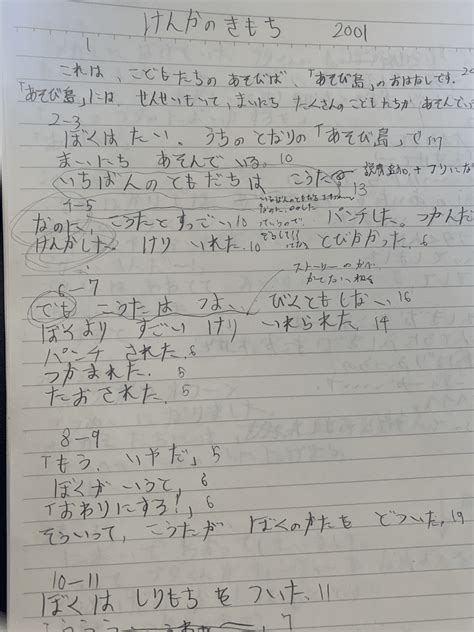 けんかのきもち 2001
1
これは、こどもたちのあそびば、「あそび島」のおはなしです。
「あそび島」には、せんせいもいて、まいにち たくさんのこどもたちが あそんで
2-3
ぼくは たい、うちのとなりの「あそび島」で
まいにち あそんで いる。10
いちばんのともだちは こうた 13
4-5
なのに、こうたとすっごい10 パンチした。つかんだ
けんかした。けり いれた。10 とびかかった。6
6-7
ストーリーの
でも こうたは つよい、びくともしない。16
ぼくより すごい けり いれられた。14
パンチ された。6
つかまれた。5
たおされた。5
8-9
「もう、いやだ」5
ぼくがいうと、6
「おわりにすろ!」6
そういって、こうたが ぼくのかたを どついた。19
10-11
ぼくは しりもちを ついた。11
7